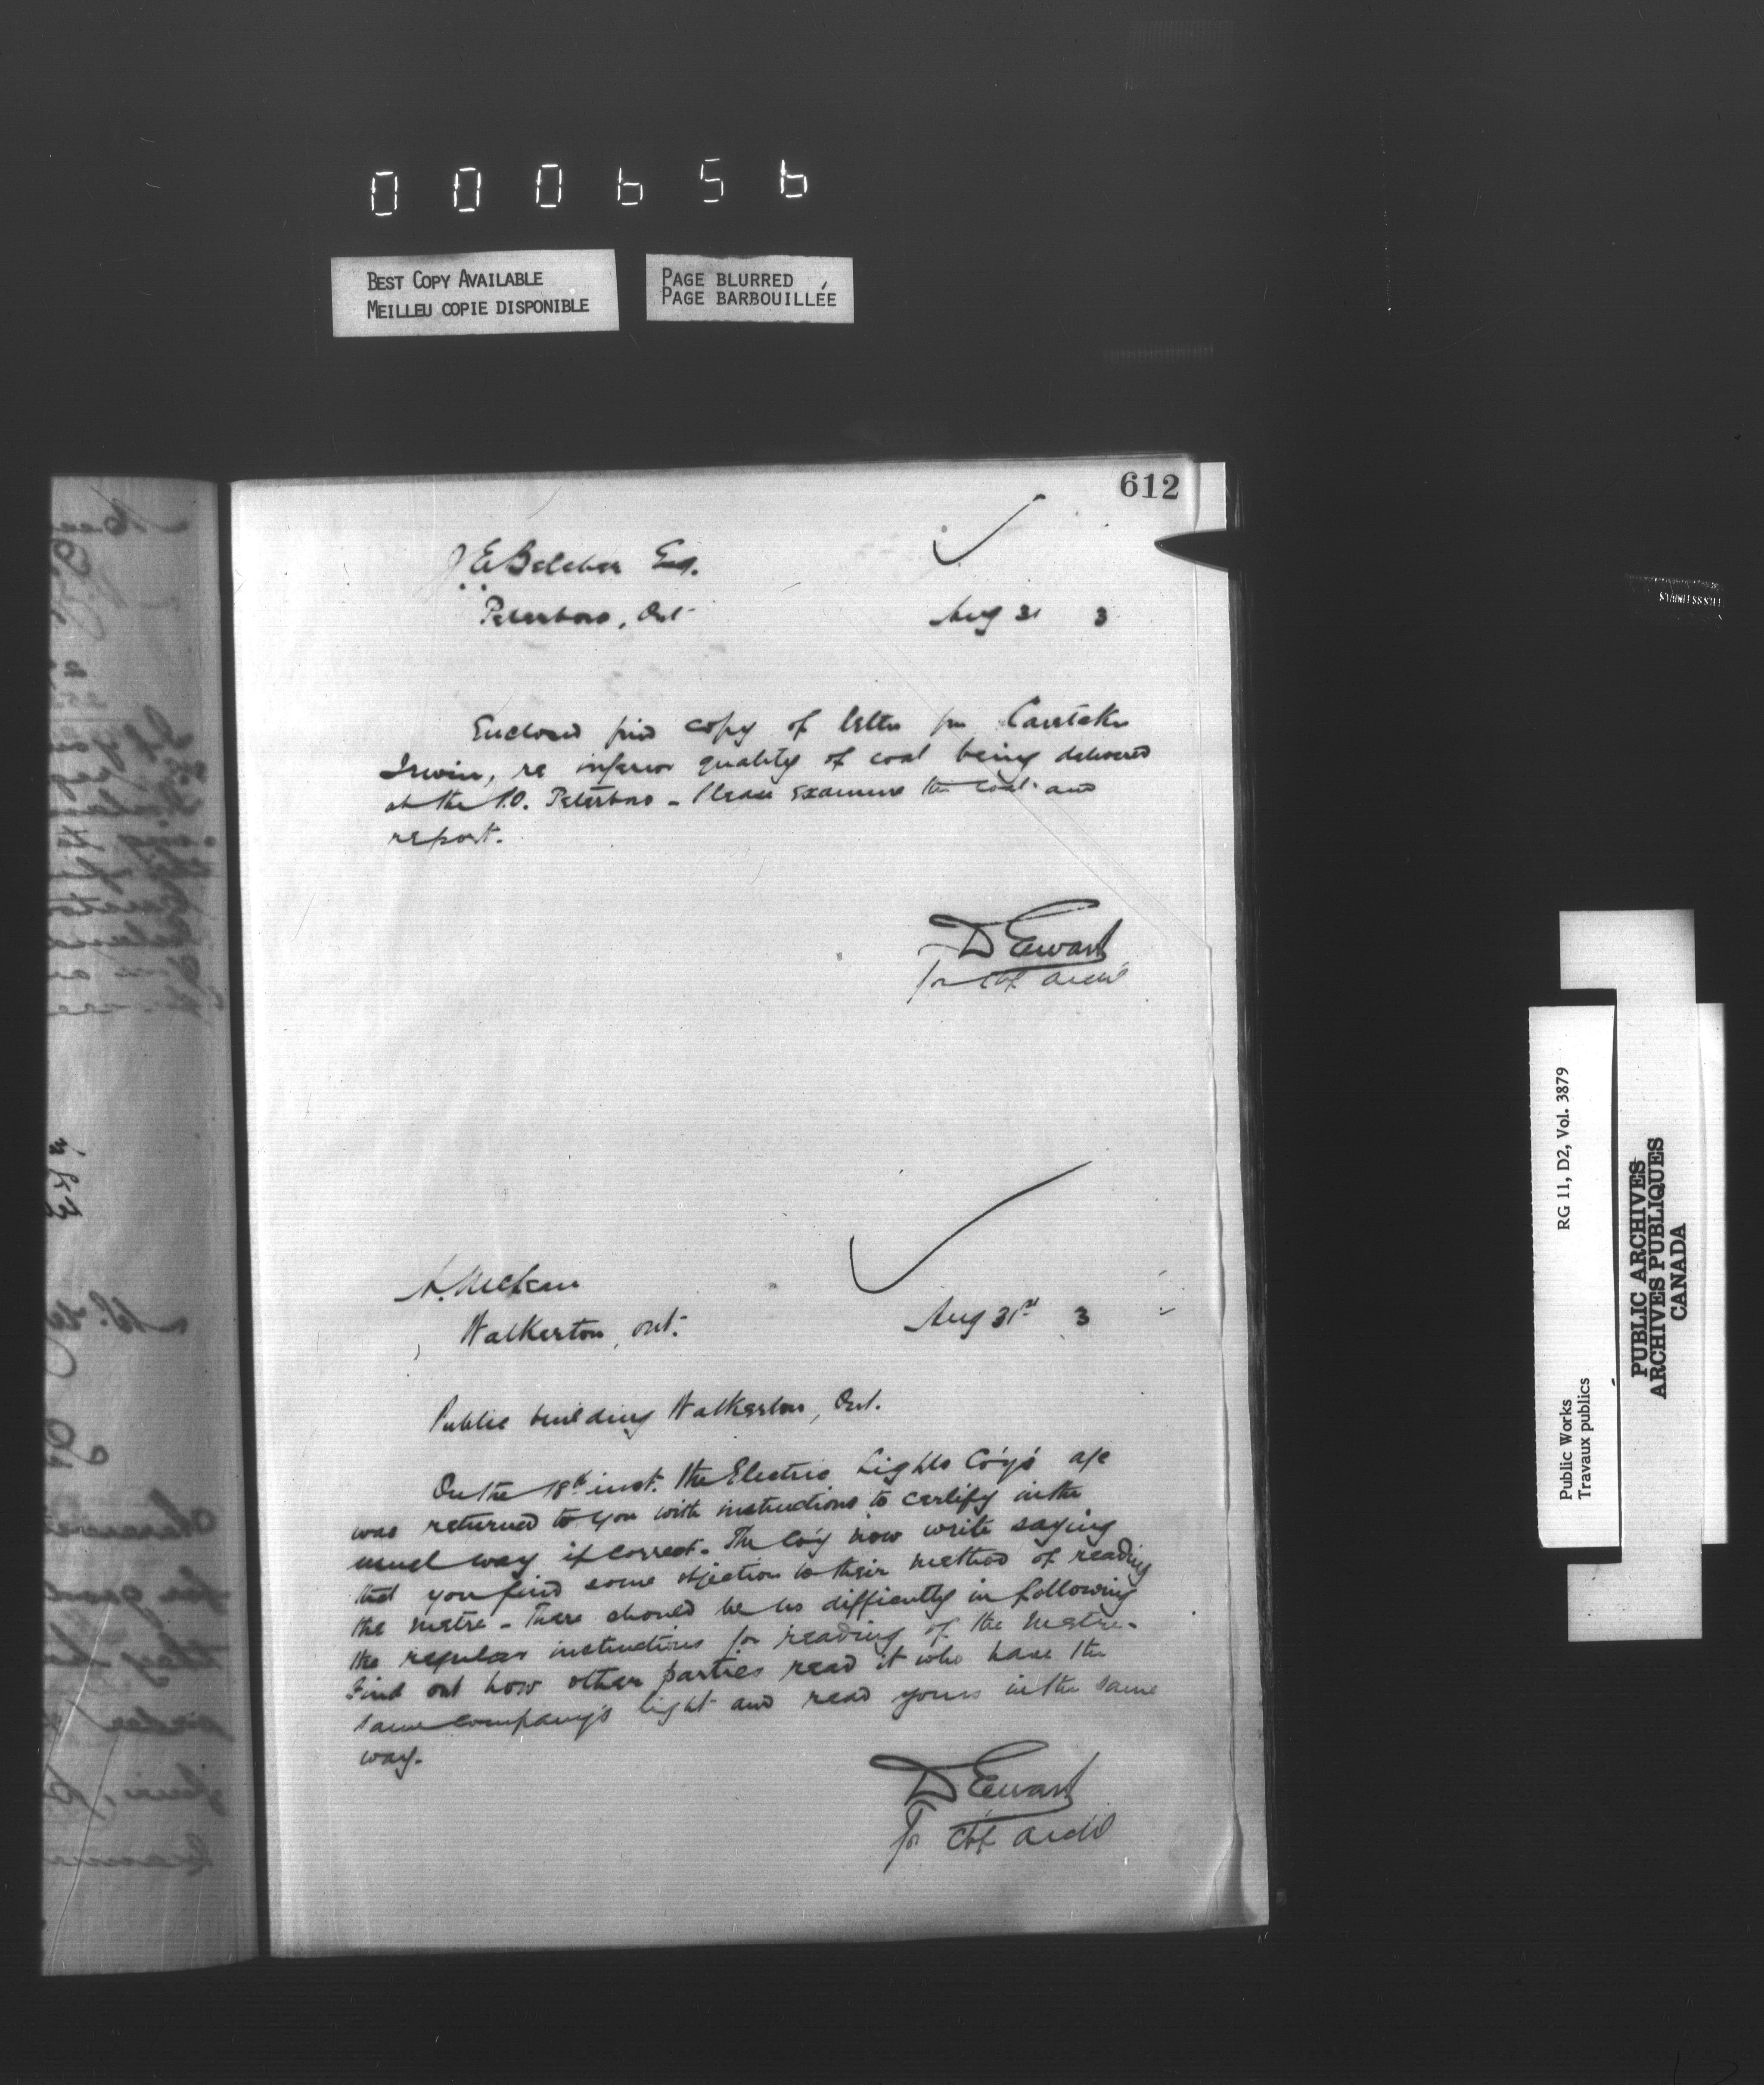 000656
BEST COPY AVAILABLE
MEILLEU COPIE DISPONIBLE
PAGE BLURRED
PAGE BARBOUILLÉE
612
J E Belcher Esq.
Peterboro, Ont
Aug 31 3
Enclosed find copy of letter fm Caretaker
Irwin, re inferior quality of coal being delivered
at the P.O. Peterboro - Please examine the coal and
report.
D Ewart
for Chf Archt
Walkerton, Ont.
Aug 31st 3
Public building Walkerton, Ont.
On the 18th inst. the Electric Lights Co'y's a/c
was returned to you with instructions to certify in the
usual way if correct. The Co'y now write saying
that you find some objection to their method of reading
the metre - There should be no difficulty in following
the regular instructions for reading of the metre.
Find out how other parties read it who have the
same company's light and read yours in the same
way.
D Ewart
for Chf Archt
Public Works
Travaux publics
RG 11, D2, Vol. 3879
PUBLIC ARCHIVES
ARCHIVES PUBLIQUES
CANADA